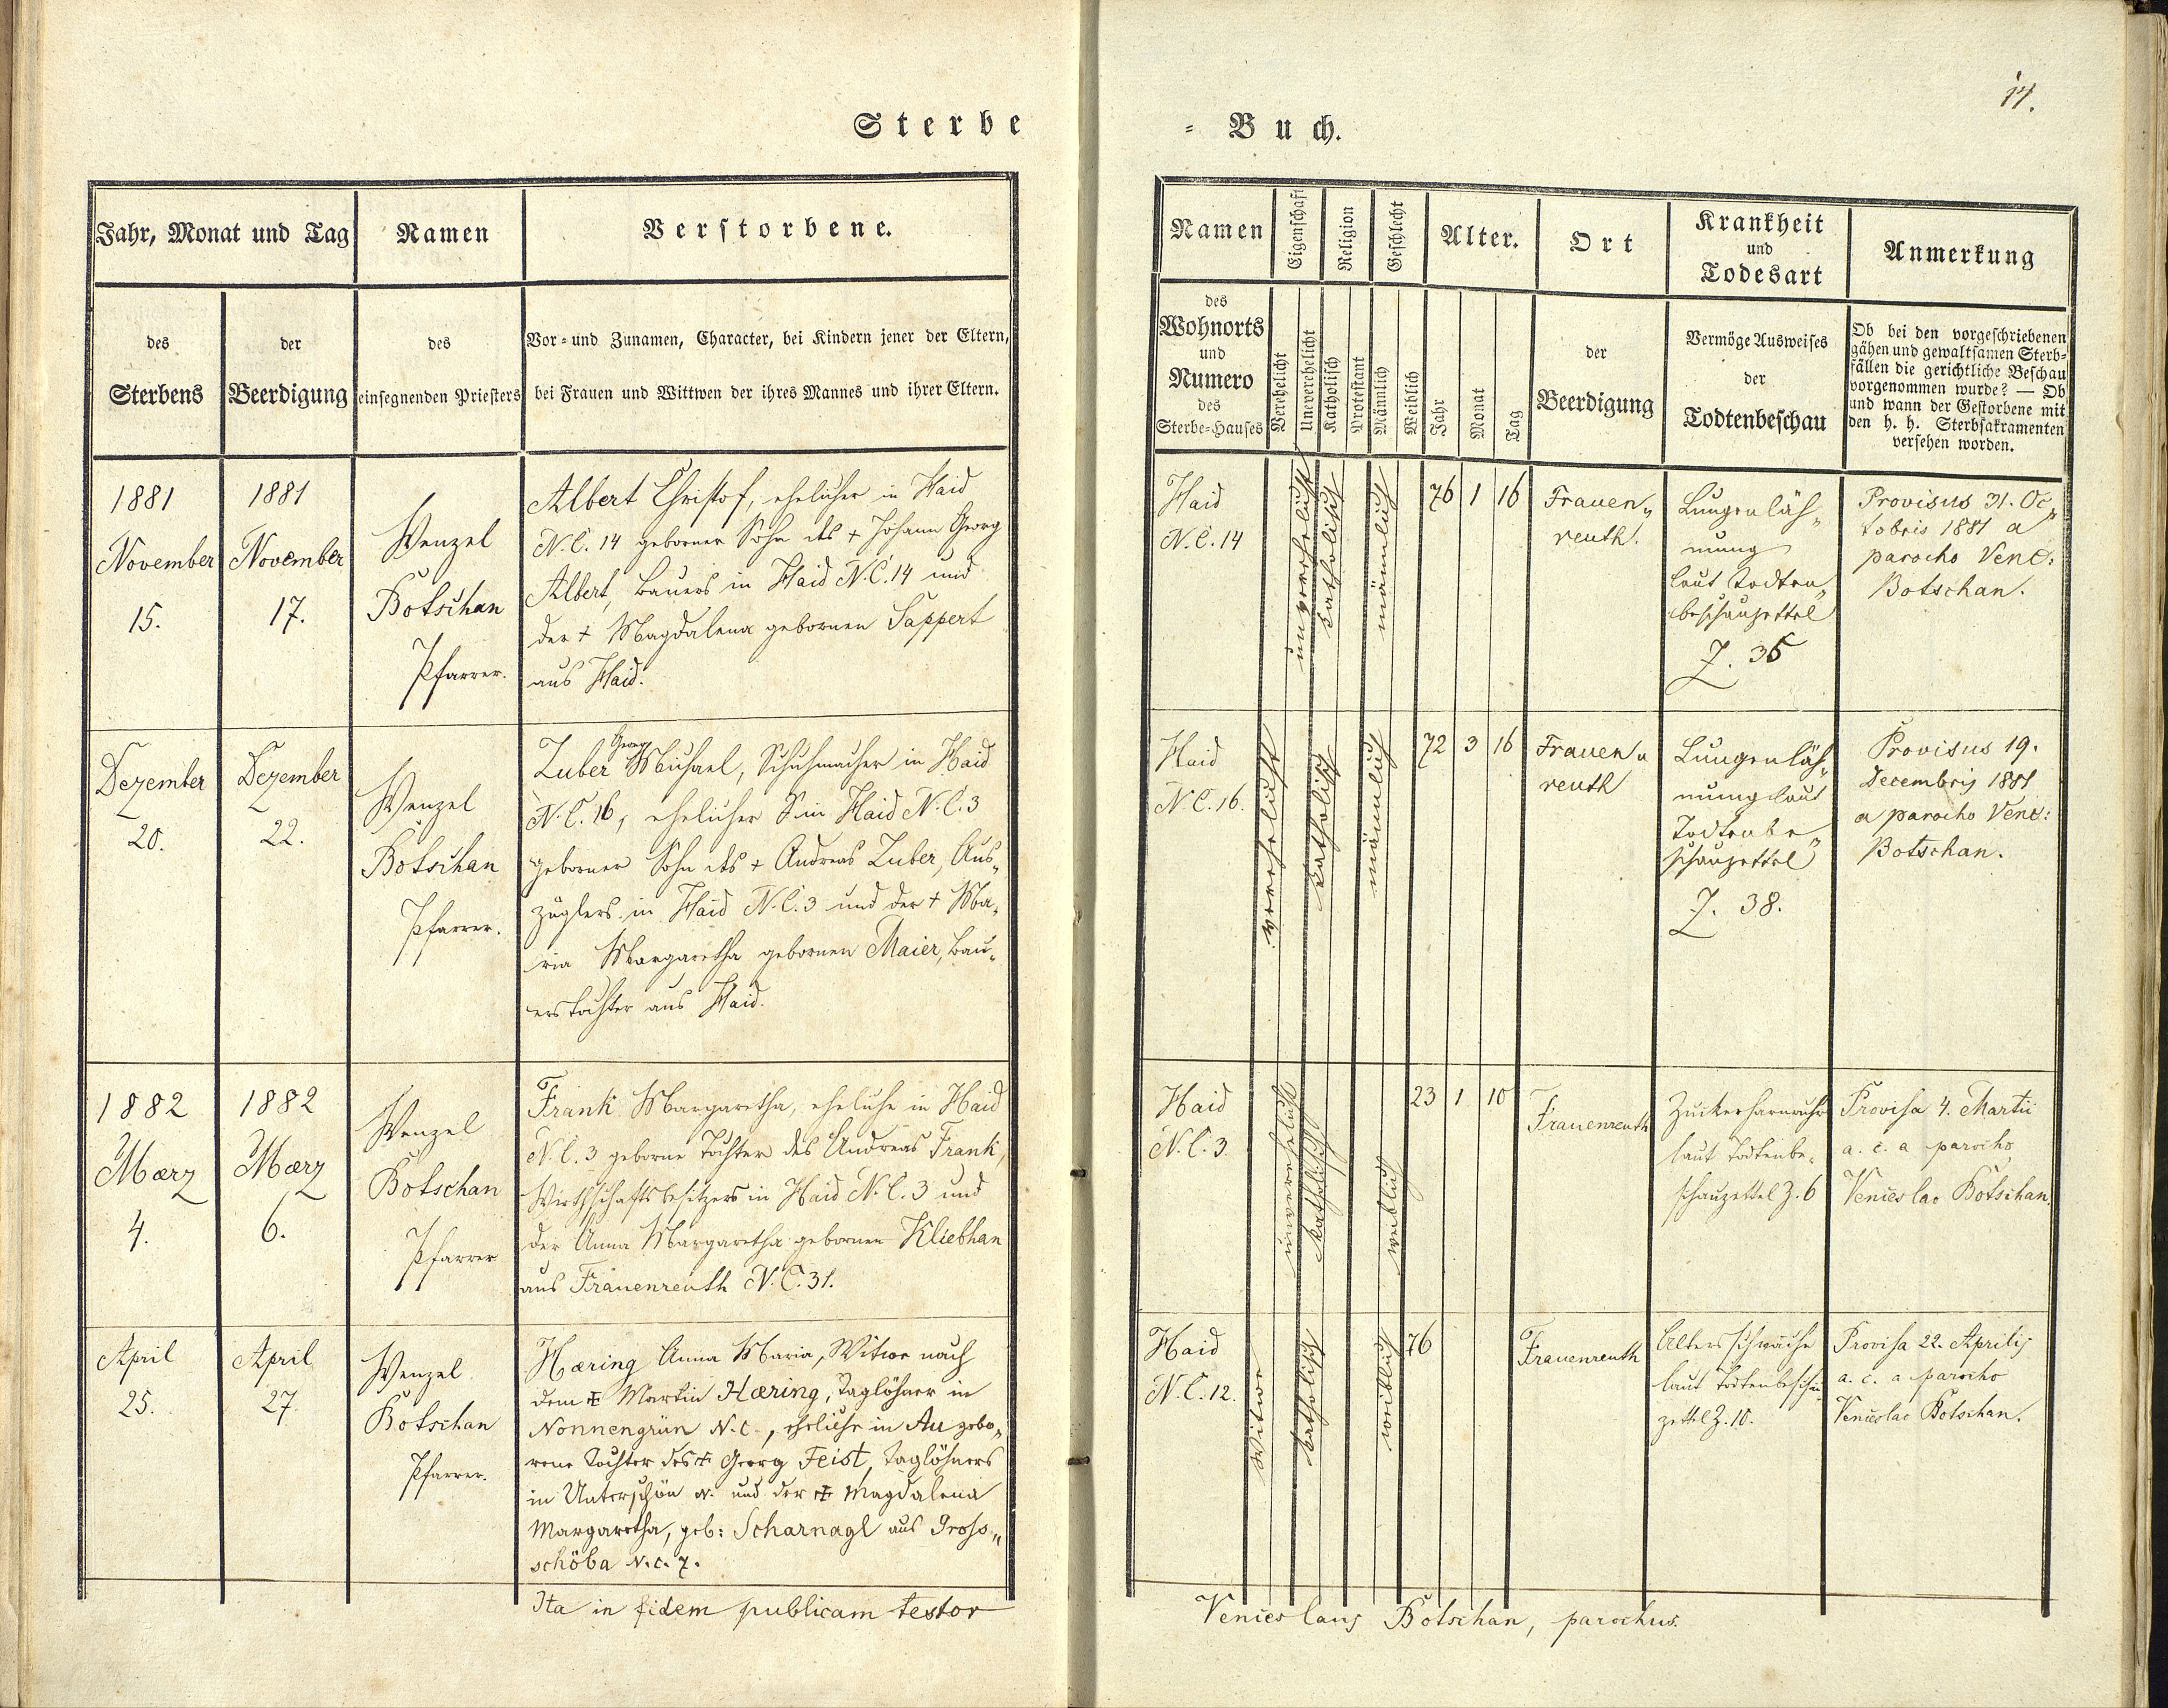 17.
Sterbe
= Buch.
Jahr, Monat und Tag
Namen
Verstorbene.
des
Sterbens
der
Beerdigung
des
einsegnenden Priesters
Vor= und Zunamen, Character, bei Kindern jener der Eltern,
bei Frauen und Wittwen der ihres Mannes und ihrer Eltern.
Namen
Eigenschaft
Religion
Geschlecht
Alter.
Ort
Krankheit
und
Todesart
Anmerkung
des
Wohnorts
und
Numero
des
Sterbe=Hauses
Verehelicht
Unverehelicht
Katholisch
Protestant
Männlich
Weiblich
Jahr
Monat
Tag
der
Beerdigung
Vermöge Ausweises
der
Todtenbeschau
Ob bei den vorgeschriebenen
gähen und gewaltsamen Sterb=
fällen die gerichtliche Beschau
vorgenommen wurde? — Ob
und wann der Gestorbene mit
den h. h. Sterbsakramenten
versehen worden.
1881
November
15.
1881
November
17.
Wenzel
Botschan
Pfarrer.
Albert Christof, ehelicher in Haid
N. C. 14 geborner Sohn des + Johann Georg
Albert, Bauers in Haid N. C. 14 und
der + Magdalena gebornen Sappert
aus Haid.
Haid
N. C. 14
unverehelicht
katholisch
männlich
76 1 16
Frauen„
reuth.
Lungenläh„
mung
laut Todten„
beschauzettel
Z. 35
Provisus 31. Oc„
tobris 1881 a
parocho Venc:
Botschan.
Dezember
20.
Dezember
22.
Wenzel
Botschan
Pfarrer.
Georg
Zuber Michael, Schuhmacher in Haid
N. C. 16, ehelicher S in Haid N. C. 3
geborner Sohn des + Andreas Zuber, Aus„
züglers in Haid N. C. 3 und der + Ma„
ria Margaretha gebornen Maier, Bau„
erstochter aus Haid.
Haid
N. C. 16.
verehelicht
katholisch
männlich
72 3 16
Frauen„
reuth
Lungenläh„
mung laut
Todtenbe„
schauzettel
Z. 38.
Provisus 19.
Decembris 1881
a parocho Venc:
Botschan.
1882
Mærz
4.
1882
Mærz
6.
Wenzel
Botschan
Pfarrer
Frank Margaretha, eheliche in Haid
N. C. 3 geborne Tochter des Andreas Frank,
Wirthschaftsbesitzers in Haid N. C. 3 und
der Anna Margaretha gebornen Kliebhan
aus Frauenreuth N. C. 31.
Haid
N. C. 3
unverehelicht
katholisch
weiblich
23 1 10
Frauenreuth
Zuckerharnruhr
laut Todtenbe„
schauzettel Z. 6
Provisa 4. Martii
a. c. a parocho
Venceslao Botschan.
April
25.
April
27.
Wenzel
Botschan
Pfarrer.
Hæring Anna Maria, Witwe nach
dem + Martin Hæring, Taglöhner in
Nonnengrün N. C. , eheliche in Au gebo„
rene Tochter des + Georg Feist, Taglöhners
in Unterschön N. und der + Magdalena
Margaretha, geb: Scharnagl aus Gross„
schöba N. C. 7.
Haid
N. C. 12.
Witwe
katholisch
weiblich
76
Frauenreuth
Altersschwäche
laut Todtenbeschau
zettel Z. 10.
Provisa 22. Aprilis
a. c. a parocho
Venceslao Botschan.
Ita in fidem publicam testor
Venceslaus Botschan, parochus.